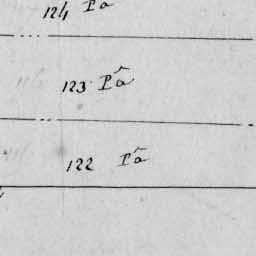 124 Pâ
123 Pâ
122 Pâ